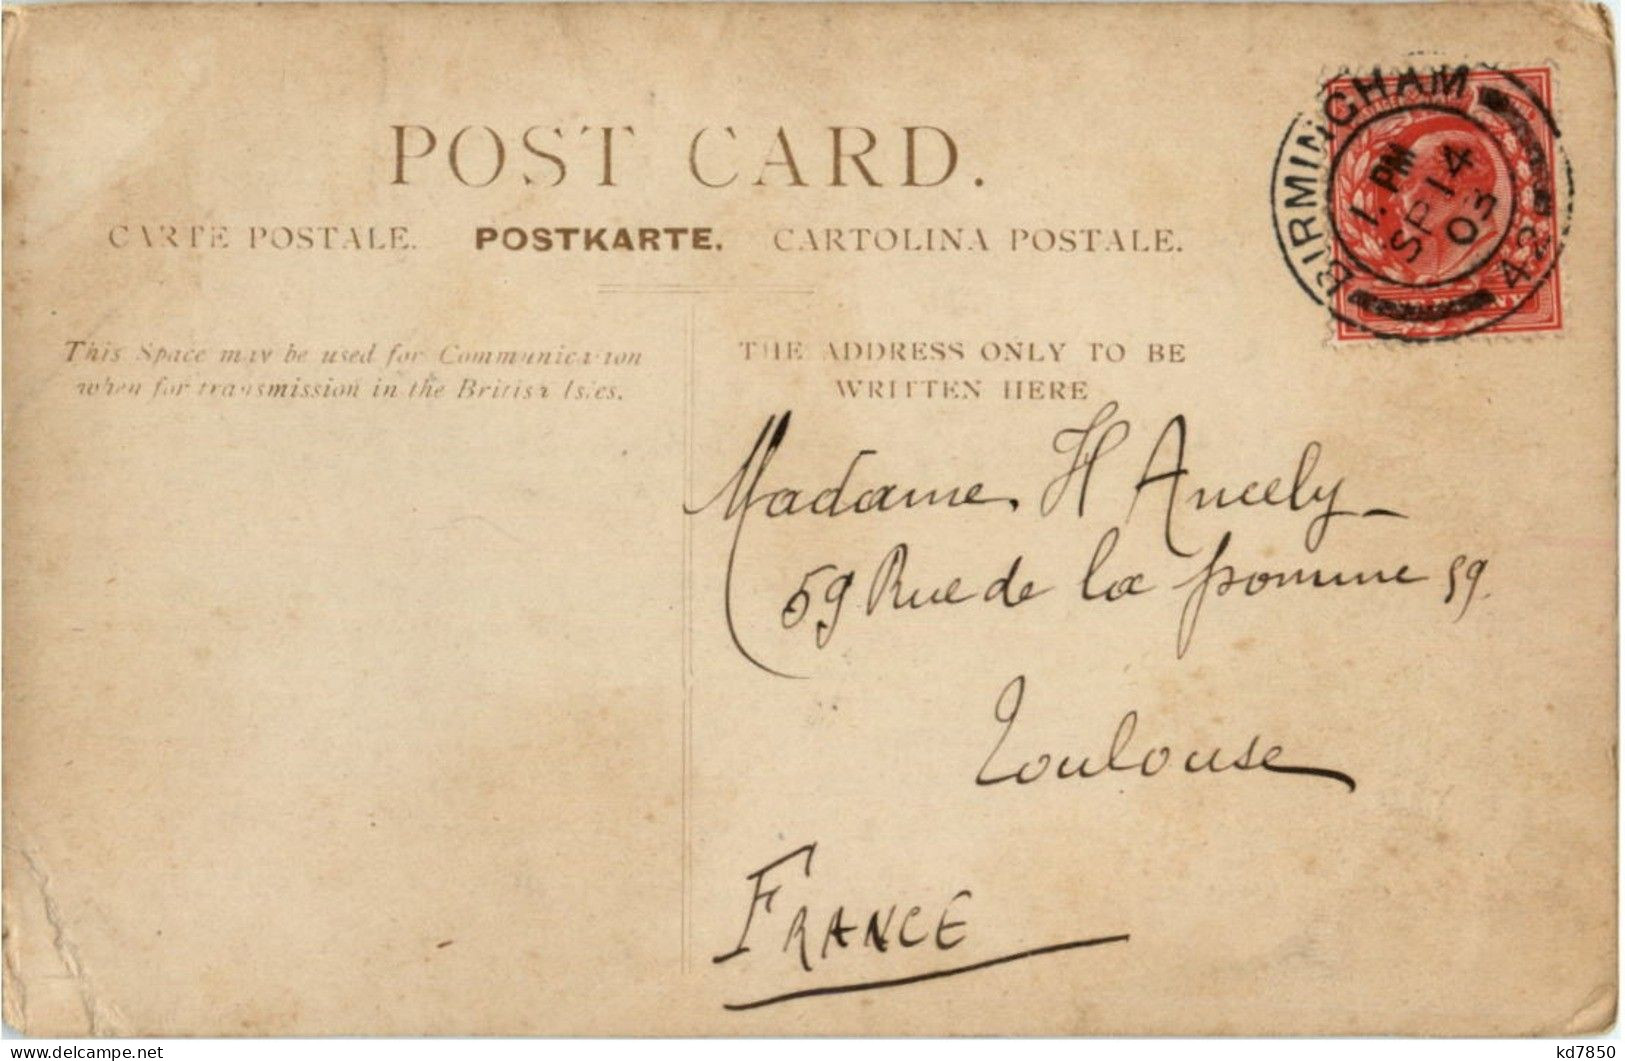 POST CARD.
CARTE POSTALE. POSTKARTE. CARTOLINA POSTALE.
BIRMINGHAM
1. PM
SP 14
03
42
This Space may be used for Communication
when for transmission in the British Isles.
THE ADDRESS ONLY TO BE
WRITTEN HERE
Madame. H Ancely_
59 Rue de la pomme 59.
Toulouse
FRANCE
www.delcampe.net
kd7850